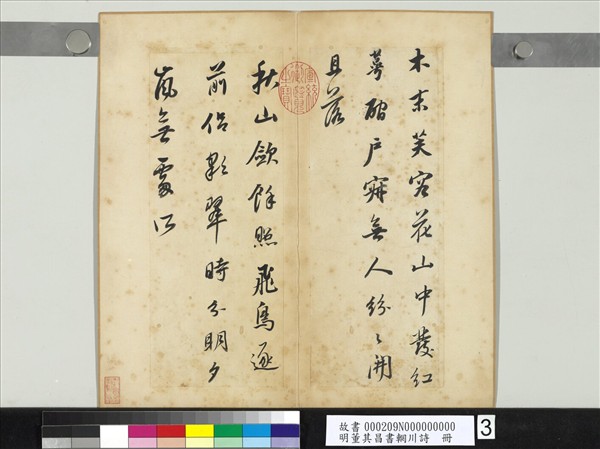 木末芙容花山中發紅
萼磵戶寂無人紛〻開
且落
秋山歛餘照飛鳥逐
前侶彩翠時分明夕
嵐無處所
故書 000209N000000000
明董其昌書輞川詩 冊
3